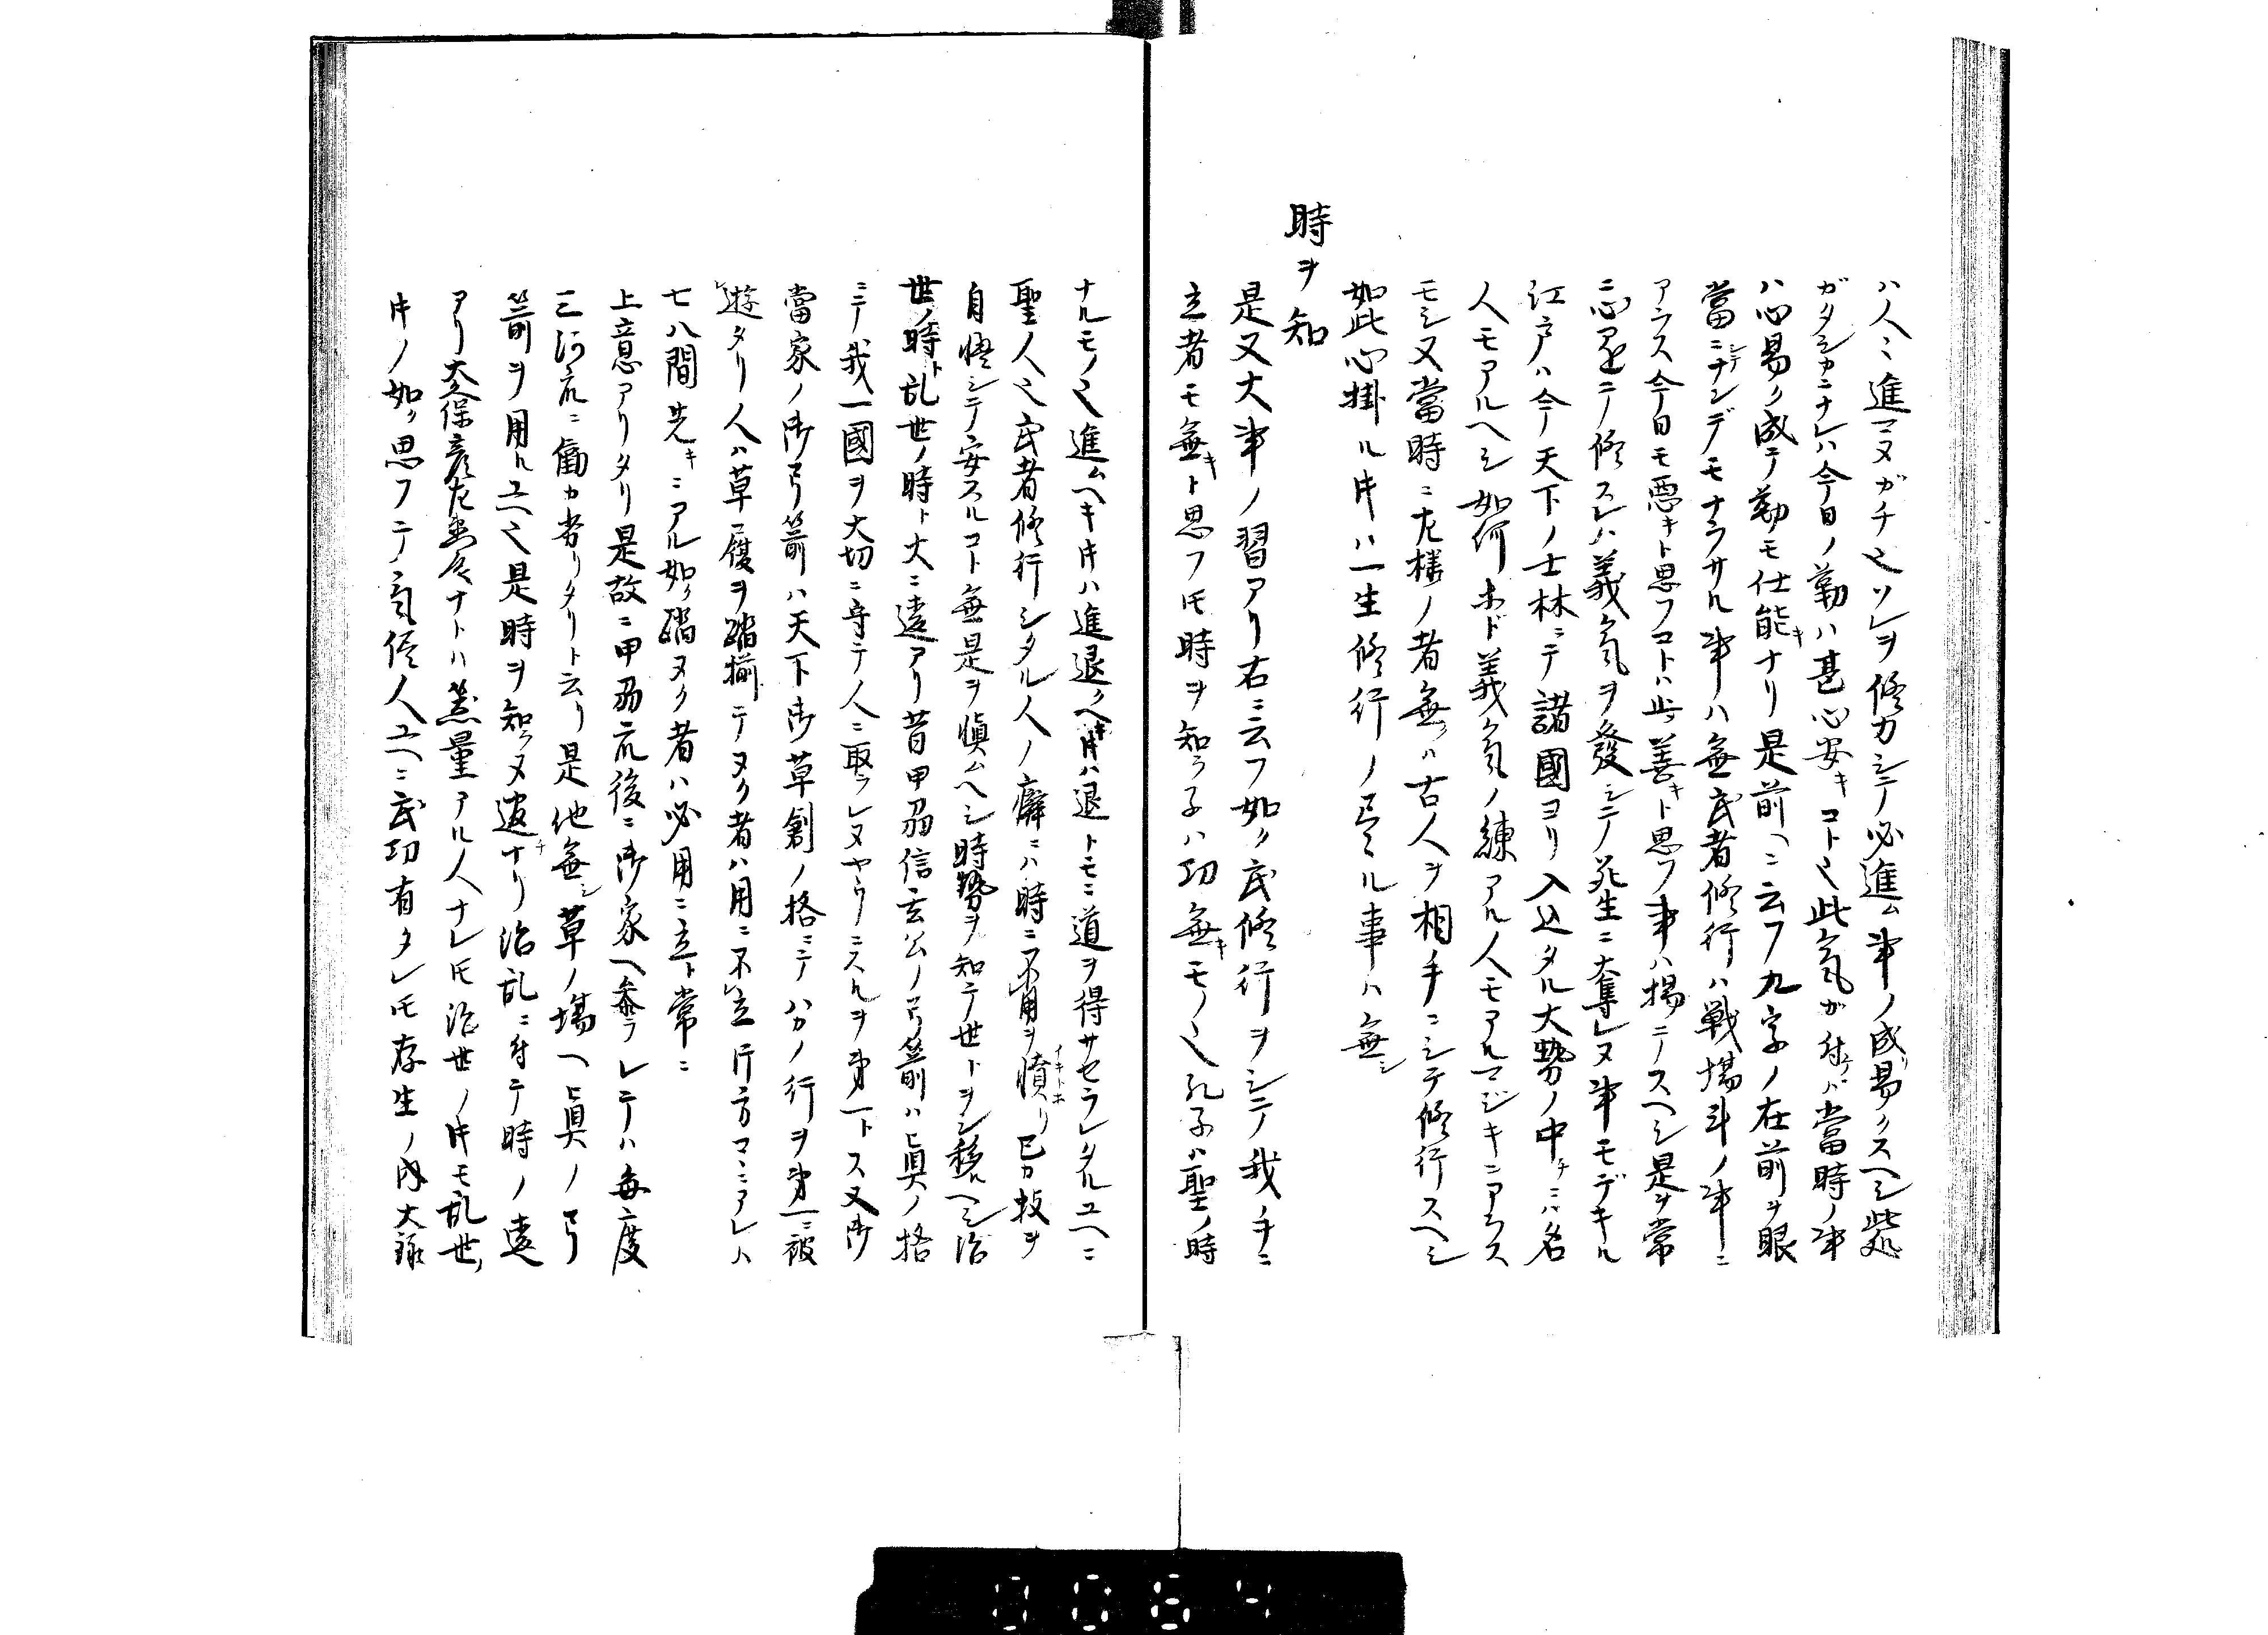 ハ人ミ進マヌガチ也ソレヲ修力シテ必進ム事ノ成リ易クスヘシ此処
ガタシカニナレハ今日ノ勤ハ甚心安キコト也此気ガ付ケバ當時ノ事
ハ心易ク成テ勤モ仕能キナリ是前ヘニ云フ九字ノ在前ヲ眼
當ニシテナンデモナラサル事ハ無武者修行ハ戦場斗ノ事ニ
アラス今日モ悪キト思フコトハ止ッ善キト思フ事ハ揚ニテスヘシ是ヲ常
ニ心足ニテ修スレハ義気ヲ發シテ死生ニ奪レヌ事モデキル
江戸ハ今天下ノ士林ニテ諸國ヨリ入込タル大勢ノ中チニハ名
人モアルヘシ如何ホド義気ノ練アル人モアルマジキニアラス
モシ又當時ニ左様ノ者無ッハ古人ヲ相手ニシテ修行スヘシ
如此心掛ル片ハ一生修行ノ尽ル事ハ無シ
時ヲ知
是又大事ノ習アリ右ニ云フ如ク武修行ヲシテ我手ニ
立者モ無キト思フ𪜈時ヲ知ラ子ハ功無キモノ也孔子ハ聖ノ時
ナルモノ也進ムヘキ片ハ進退クヘキ片ハ退トモニ道ヲ得サセラレタルユヘニ
聖ノ人也武者修行シタル人ノ癖ニハ時ニ不用ヲ憤イキトホリ己カ技ヲ
自慢シテ安スルコト無是ヲ慎ムヘシ時勢ヲ知テ世トヲシ移ルヘシ治
世ノ時ト乱世ノ時ト大ニ違アリ昔甲刕信玄公ノ弓箭ハ眞ノ格
ニテ我一國ヲ大切ニ守テ人ニ取ラレヌヤウニスルヲ第一トス又御
當家ノ御弓箭ハ天下御草創ノ格ニテハカノ行ヲ第一ニ被
遊タリ人ハ草履ヲ踏揃テヌク者ハ用ニ不立片方マヽニアレハ
七八間先キニアル如ク踏ヌク者ハ必用ニ立ト常ニ
上意アリタリ是故ニ甲刕流後ニ御家ヘ參ラレテハ毎度
三河流ニ働カ劣リタリト云リ是他無シ草ノ場ヘ眞ノ弓
箭ヲ用ルユヘ也是時ヲ知ラヌ違チナリ治乱ニ付テ時ノ違
アリ大久保彦左衛門ナトハ器量アル人ナレ𪜈治世ノ片モ乱世ノ
片ノ如ク思フテノ気侭人ユヘニ武功有タレ𪜈存生ノ内大録